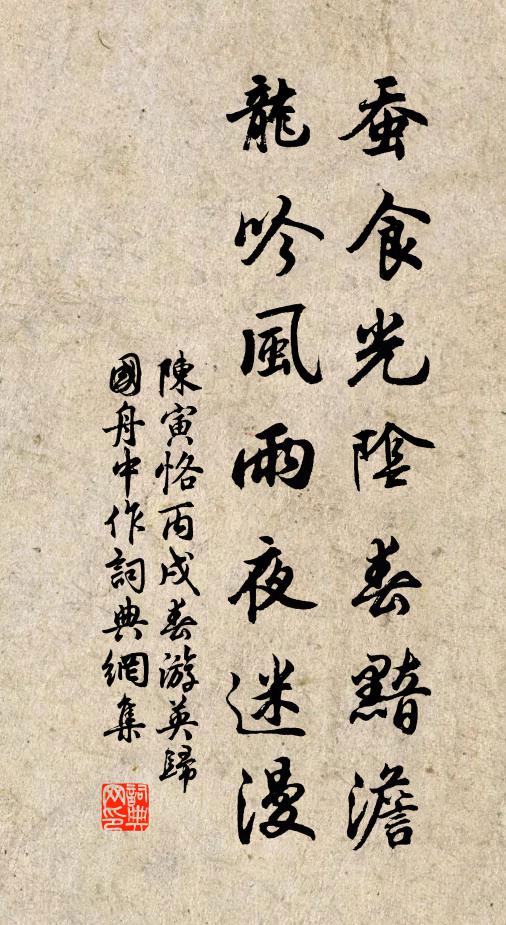 蚕食光陰春黯澹
龍吟風雨夜迷漫
陳寅恪丙戌春游英歸
國舟中作詞典網集
詞典网印